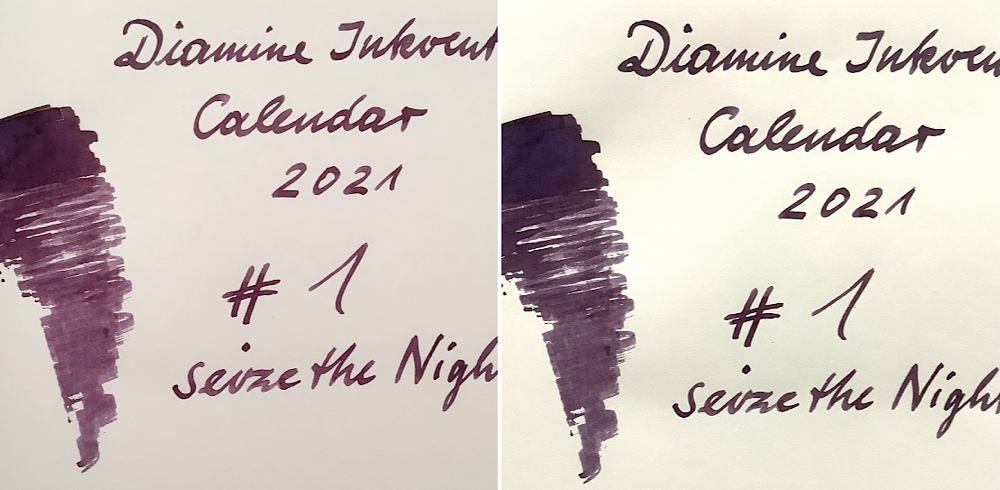 Diamine Inkvent
Calendar
2021
# 1
seize the Nigh
Diamine Inkven
Calendar
2021
# 1
seize the Night